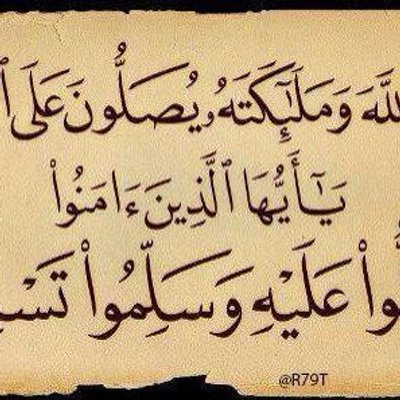 للَّهَ وَمَلَٰٓئِكَتَهُۥ يُصَلُّونَ عَلَى ٱ
يَٰٓأَيُّهَا ٱلَّذِينَ ءَامَنُوا۟
وا۟ عَلَيْهِ وَسَلِّمُوا۟ تَسْ
@R79T